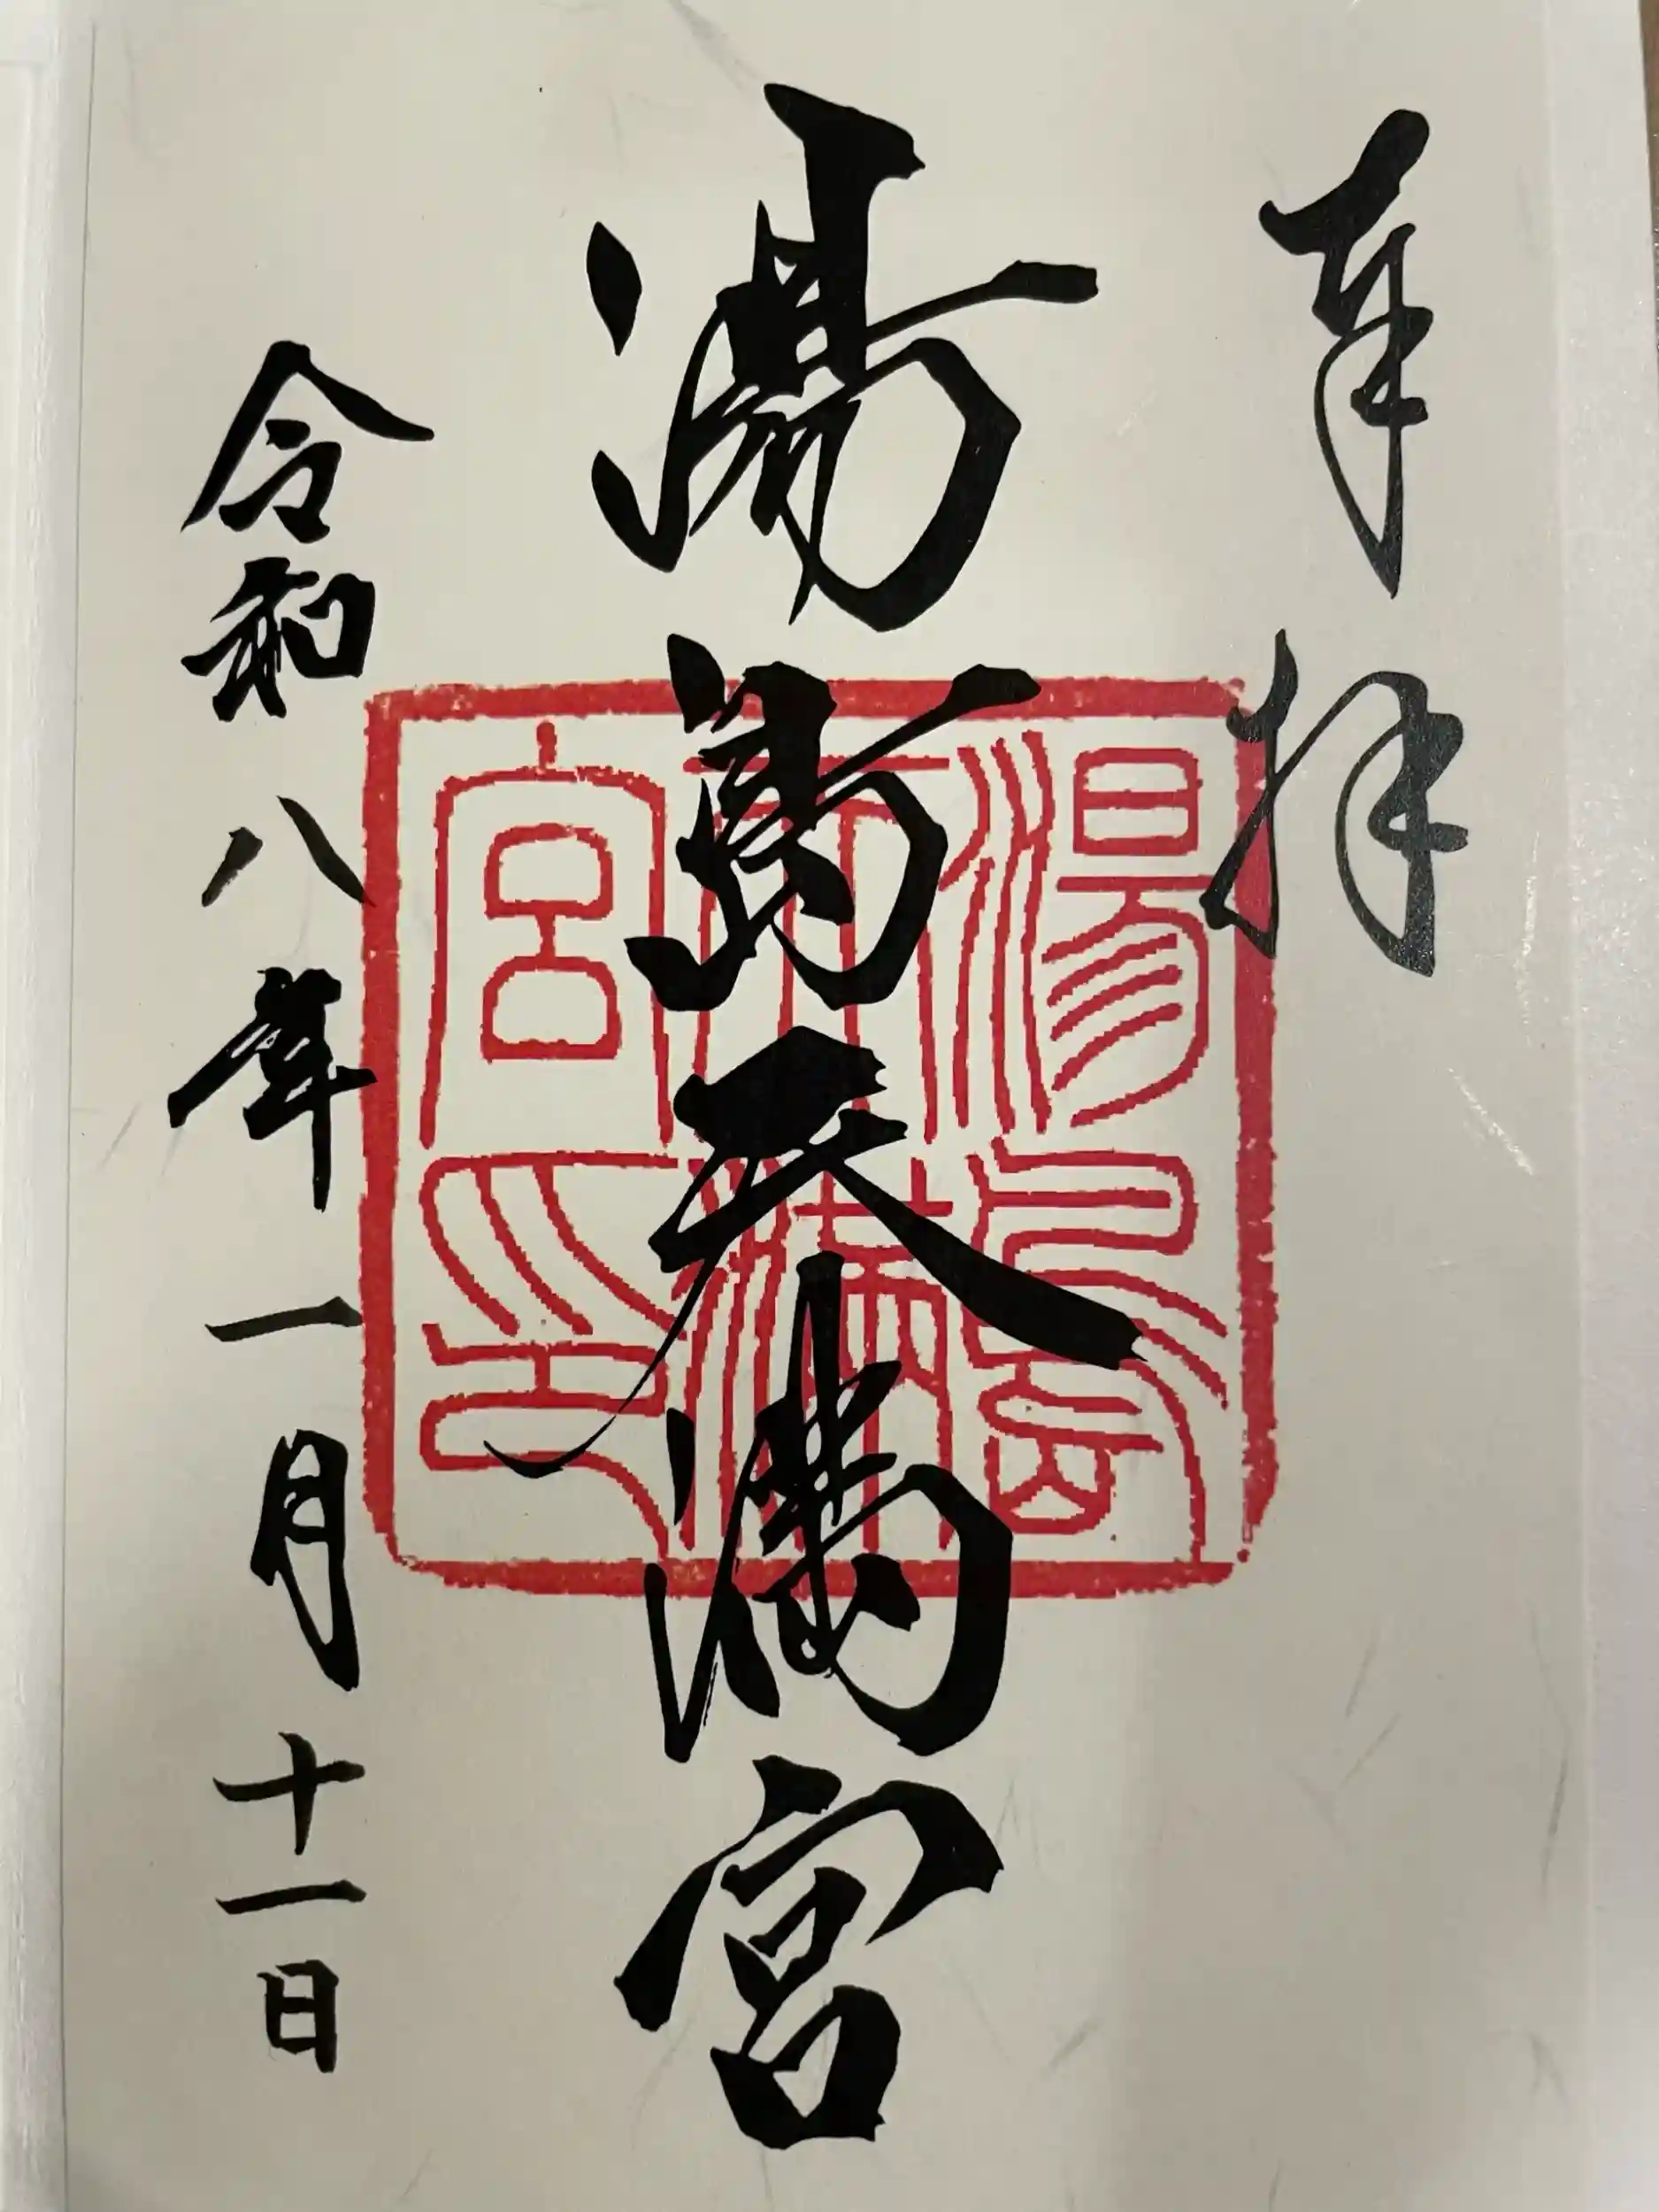 奉拝
湯島天満宮
湯島
天満
宮印
令和八年一月十一日